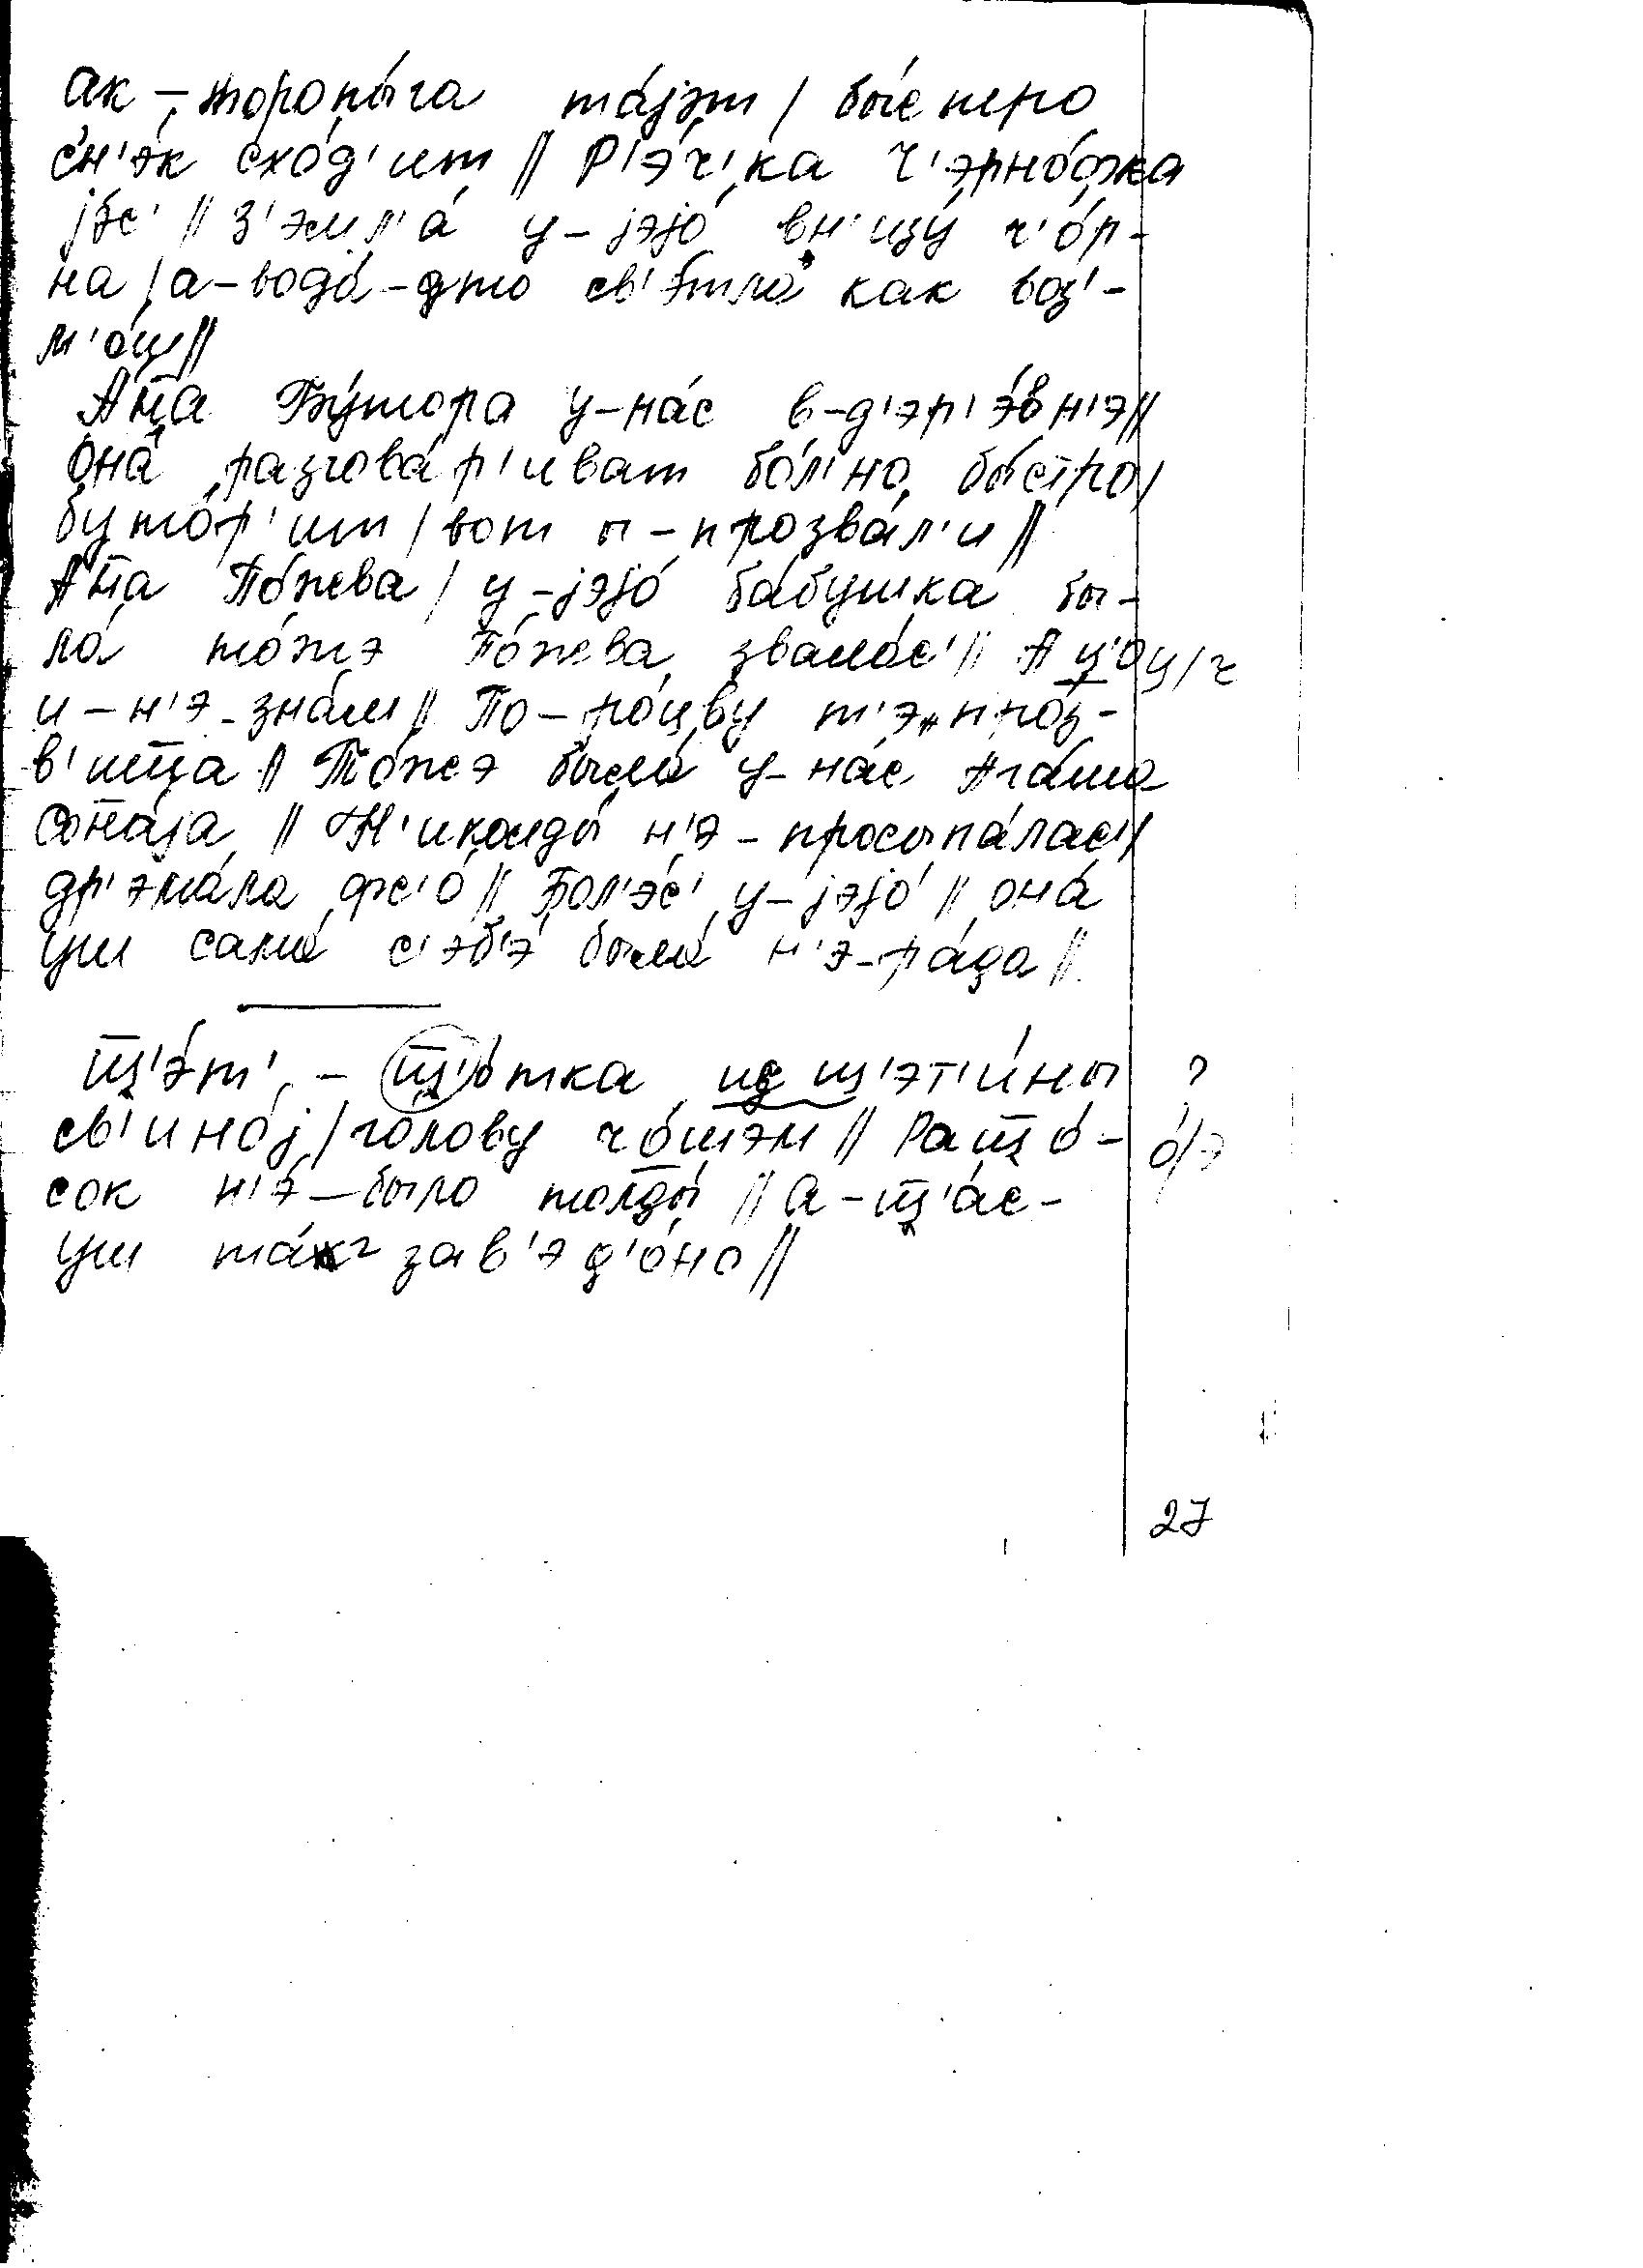 ак – торопы́га та́jэт / бы́стро
сн'э́к схо́д'ит // Р'э́ч'ка Ч'эрно́фка
jэ́с' // З'эмл'а́ у-jэjо́ вн'изу́ ч'о́р-
на / а-вода́-дто св'этла́ как воз'-
м'о́ш //
Ан̄а Бу́тора у-на́с в-д'эр'э́вн'э //
Она́ разгова́р'иват бо́л'но бы́стро /
буто́р'ит / вот ы-прозва́л'и //
Ан̄а По́жева / у-jэjо́ ба́бушка бы-
ла́ то́жэ По́жева звала́с' // А ц'о ц/ч
и-н'э-зна́м // По- ро́цву т'э про́з-
в'ища // То́жэ была́ у-на́с Агаша
Сон̄а́jа // Н'икогды́ н'э-просыпа́лас' /
др'эма́ла фс'о́ // Бол'э́с' у-jэjо́ // она́
уш сама́ с'эб'э́ была́ н'э-ра́да //
Щ̄'э́т' – щ̄'о́тка из щ'эт'и́ны ?
св'ино́j / го́лову ч'о́шэм // Ращ̄о́- о́/э
сок н'э́-было толды́ // а-щ̄'а́с-
уш та́к зав'эд'о́но //
27